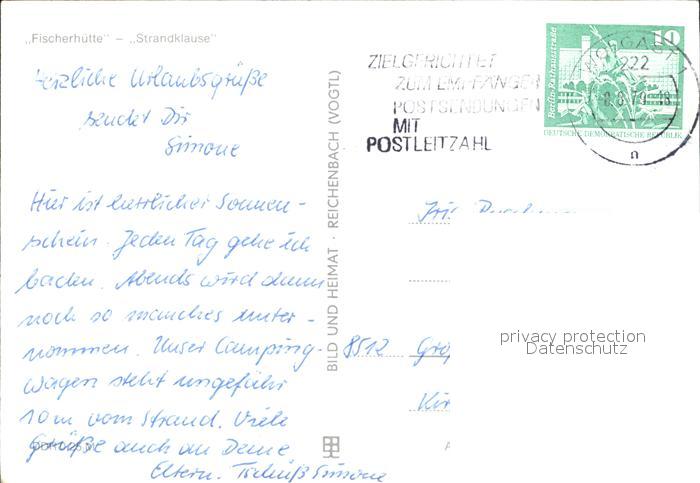 „Fischerhütte" – „Strandklause"
Herzliche Urlaubsgrüße
sendet Dir
Simone
Hier ist herrlicher Sonnen-
schein. Jeden Tag gehe ich
baden. Abends wird dann
noch so manches unter-
nommen. Unser Camping-
wagen steht ungefähr
10 m vom Strand. Viele
Grüße auch an Deine
Eltern. Tschüß Simone
BILD UND HEIMAT · REICHENBACH (VOGTL)
ZIELGERICHTET
ZUM EMPFÄNGER
POSTSENDUNGEN
MIT
POSTLEITZAHL
WOLGAST 1
222
n
10
Berlin-Rathausstraße
DEUTSCHE DEMOKRATISCHE REPUBLIK
8512
privacy protection
Datenschutz